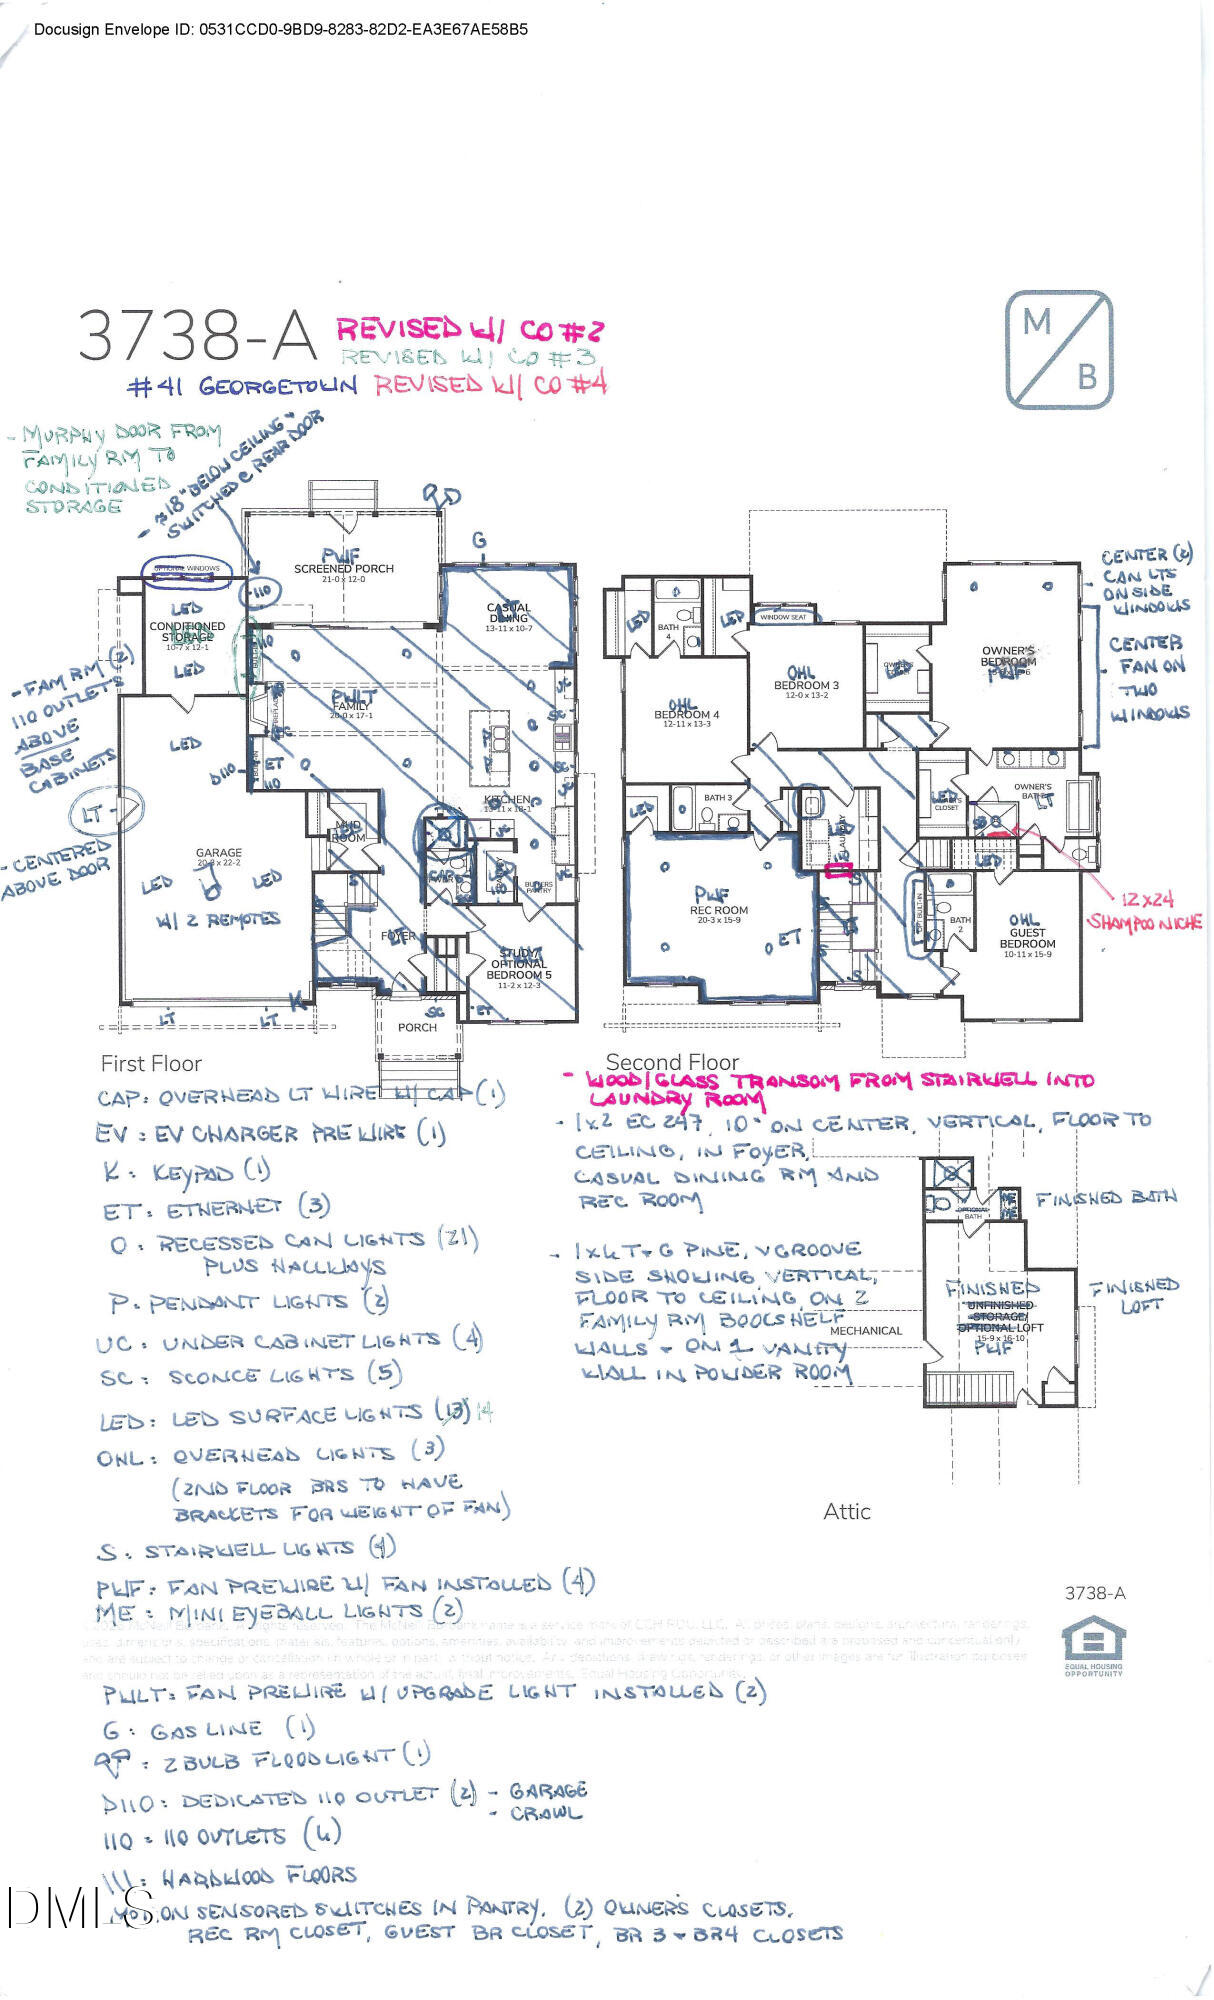 Docusign Envelope ID: 0531CCD0-9BD9-8283-82D2-EA3E67AE58B5
3738-A
REVISED W/ CO #2
REVISED W/ CO #3
#41 GEORGETOWN REVISED W/ CO #4
M
B
- MURPHY DOOR FROM
FAMILY RM TO
CONDITIONED
STORAGE
18" BELOW CEILING
SWITCHED @ REAR DOOR
- FAM RM (2)
110 OUTLETS
ABOVE
BASE
CABINETS
LT
- CENTERED
ABOVE DOOR
OPTIONAL WINDOWS
LED
CONDITIONED
STORAGE
10-7 x 12-1
LED
110
PWF
SCREENED PORCH
21-0 x 12-0
G
CASUAL
DINING
13-11 x 10-7
PWLT
FAMILY
20-0 x 17-1
110
ET
110
D110
UC
SC
UC
SC
KITCHEN
13-11 x 18-1
LED
MUD
ROOM
GARAGE
20-3 x 22-2
LED
LED
W/ 2 REMOTES
CAP
UC
PANTRY
BUTLER'S
PANTRY
UC
S
FOYER
STUDY/
OPTIONAL
BEDROOM 5
11-2 x 12-3
ET
SC
K
LT
LT
PORCH
First Floor
LED
BATH
4
LED
WINDOW SEAT
OHL
BEDROOM 3
12-0 x 13-2
OHL
BEDROOM 4
12-11 x 13-3
OWNER'S
BEDROOM
PWF
CENTER (2)
CAN LTS
ON SIDE
WINDOWS
CENTER
FAN ON
TWO
WINDOWS
LED
BATH 3
LAUNDRY
LED
OWNER'S
CLOSET
OWNER'S
BATH
LT
LED
PWF
REC ROOM
20-3 x 15-9
ET
S
S
BATH
2
OHL
GUEST
BEDROOM
10-11 x 15-9
12x24
SHAMPOO NICHE
Second Floor
- WOOD/GLASS TRANSOM FROM STAIRWELL INTO
LAUNDRY ROOM
- 1x2 EC 247, 10" ON CENTER, VERTICAL, FLOOR TO
CEILING, IN FOYER,
CASUAL DINING RM AND
REC ROOM
- 1x6 T+G PINE, VGROOVE
SIDE SHOWING, VERTICAL,
FLOOR TO CEILING, ON 2
FAMILY RM BOOKSHELF
WALLS + ON 1 VANITY
WALL IN POWDER ROOM
OPTIONAL
BATH
ME
ME
FINISHED BATH
FINISHED
UNFINISHED
STORAGE/
OPTIONAL LOFT
15-9 x 16-10
PWF
FINISHED
LOFT
MECHANICAL
Attic
CAP: OVERHEAD LT WIRE W/ CAP (1)
EV: EV CHARGER PREWIRE (1)
K: KEYPAD (1)
ET: ETHERNET (3)
O: RECESSED CAN LIGHTS (21)
PLUS HALLWAYS
P: PENDANT LIGHTS (2)
UC: UNDER CABINET LIGHTS (4)
SC: SCONCE LIGHTS (5)
LED: LED SURFACE LIGHTS (13) 14
OHL: OVERHEAD LIGHTS (3)
(2ND FLOOR BRS TO HAVE
BRACKETS FOR WEIGHT OF FAN)
S: STAIRWELL LIGHTS (4)
PWF: FAN PREWIRE W/ FAN INSTALLED (4)
ME: MINI EYEBALL LIGHTS (2)
PWLT: FAN PREWIRE W/ UPGRADE LIGHT INSTALLED (2)
G: GAS LINE (1)
: 2 BULB FLOODLIGHT (1)
D110: DEDICATED 110 OUTLET (2) - GARAGE
- CRAWL
110 = 110 OUTLETS (6)
\\\: HARDWOOD FLOORS
MOTION SENSORED SWITCHES IN PANTRY, (2) OWNER'S CLOSETS,
REC RM CLOSET, GUEST BR CLOSET, BR 3 + BR4 CLOSETS
3738-A
EQUAL HOUSING
OPPORTUNITY
DMLS